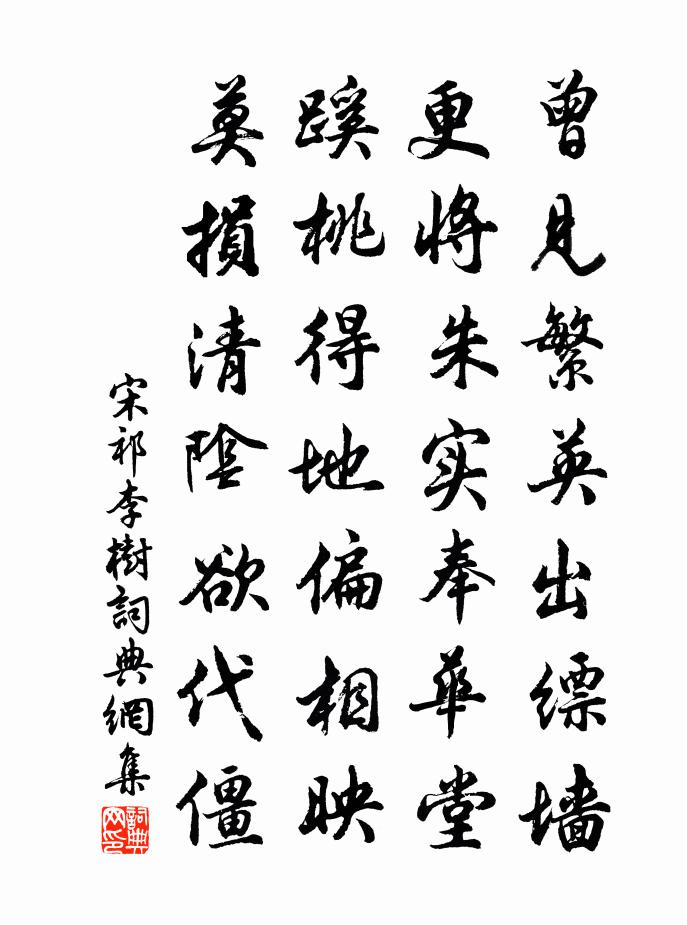 曾见繁英出缥墙
更将朱实奉华堂
蹊桃得地偏相映
莫损清陰欲代僵
宋祁李樹詞典網集
詞典网印